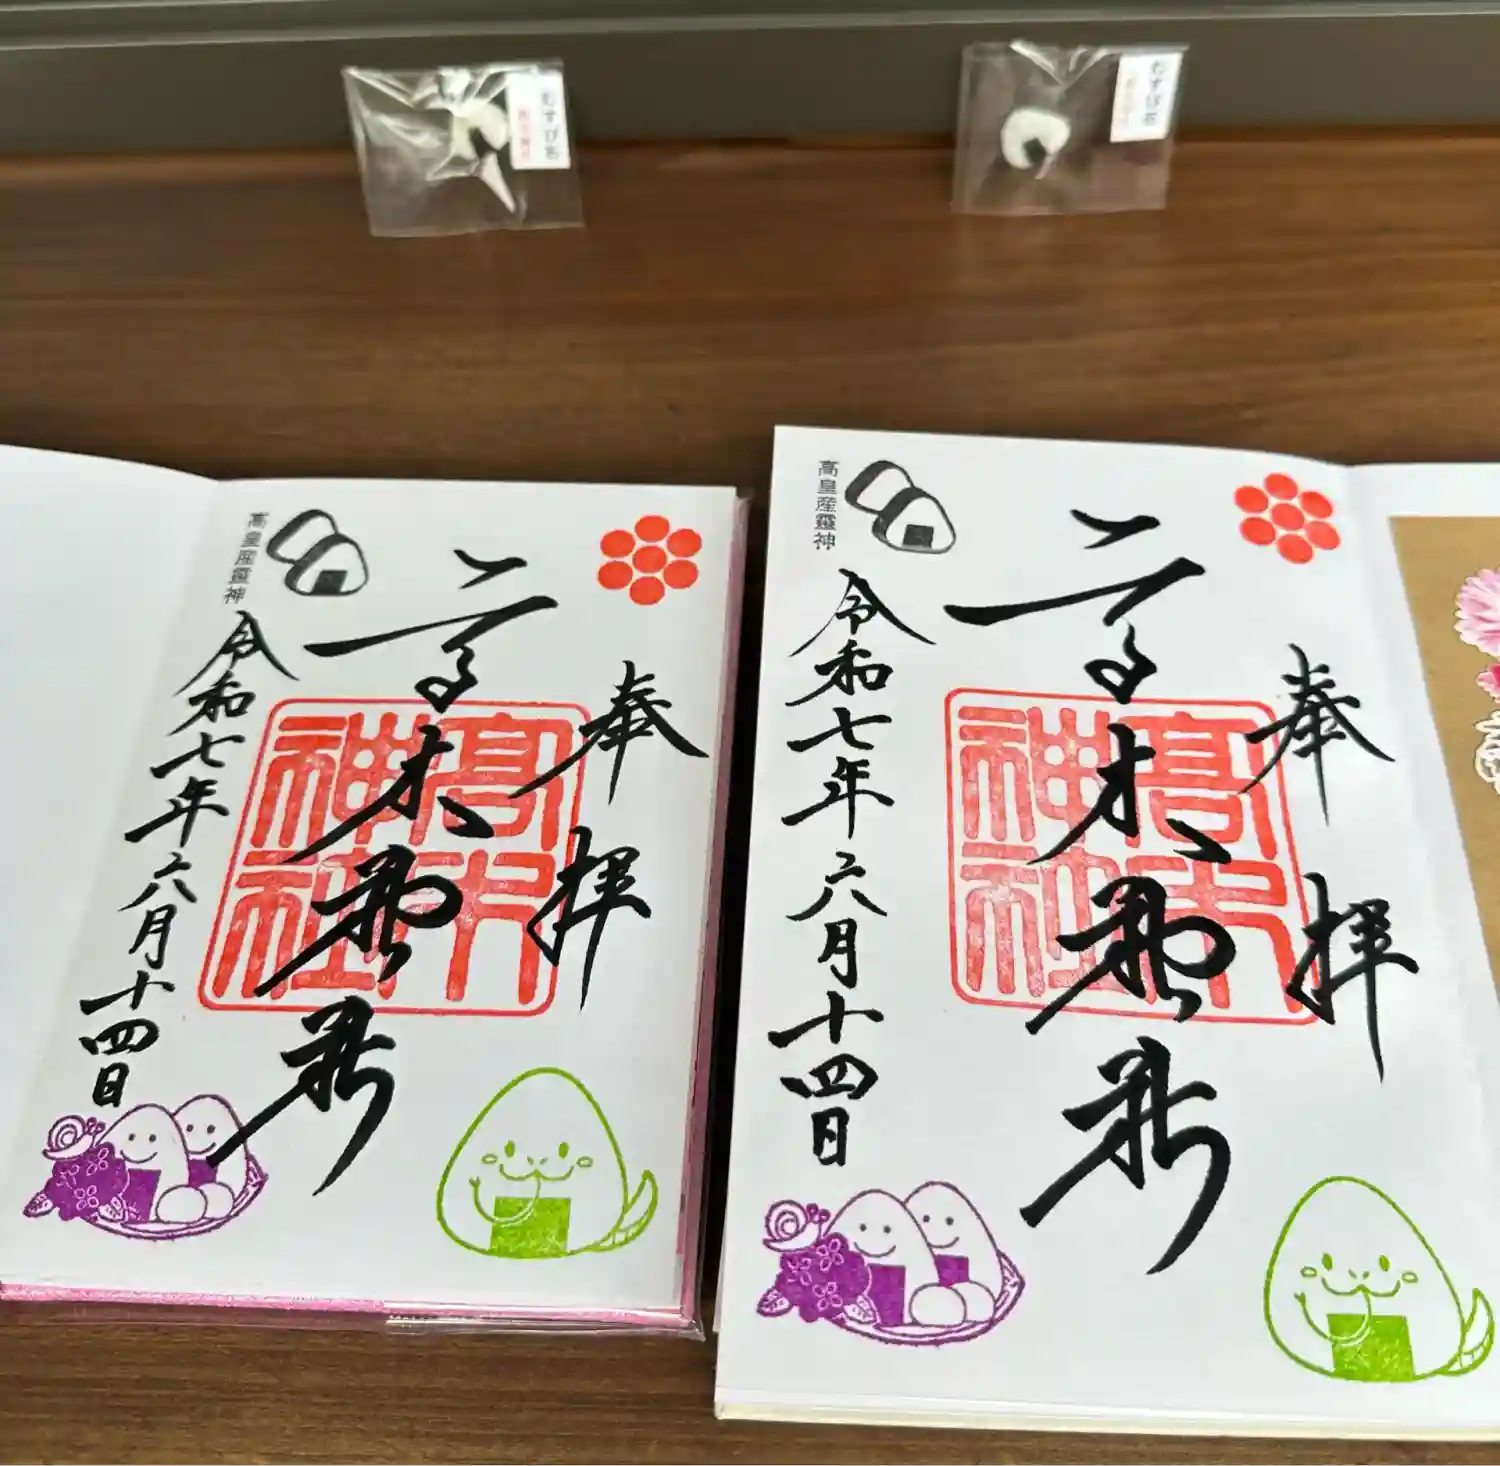 むすび石
むすび石
高皇産靈神
令和七年六月十四日
高木神社
奉拝
高木神社
高皇産靈神
令和七年六月十四日
高木神社
奉拝
高木神社